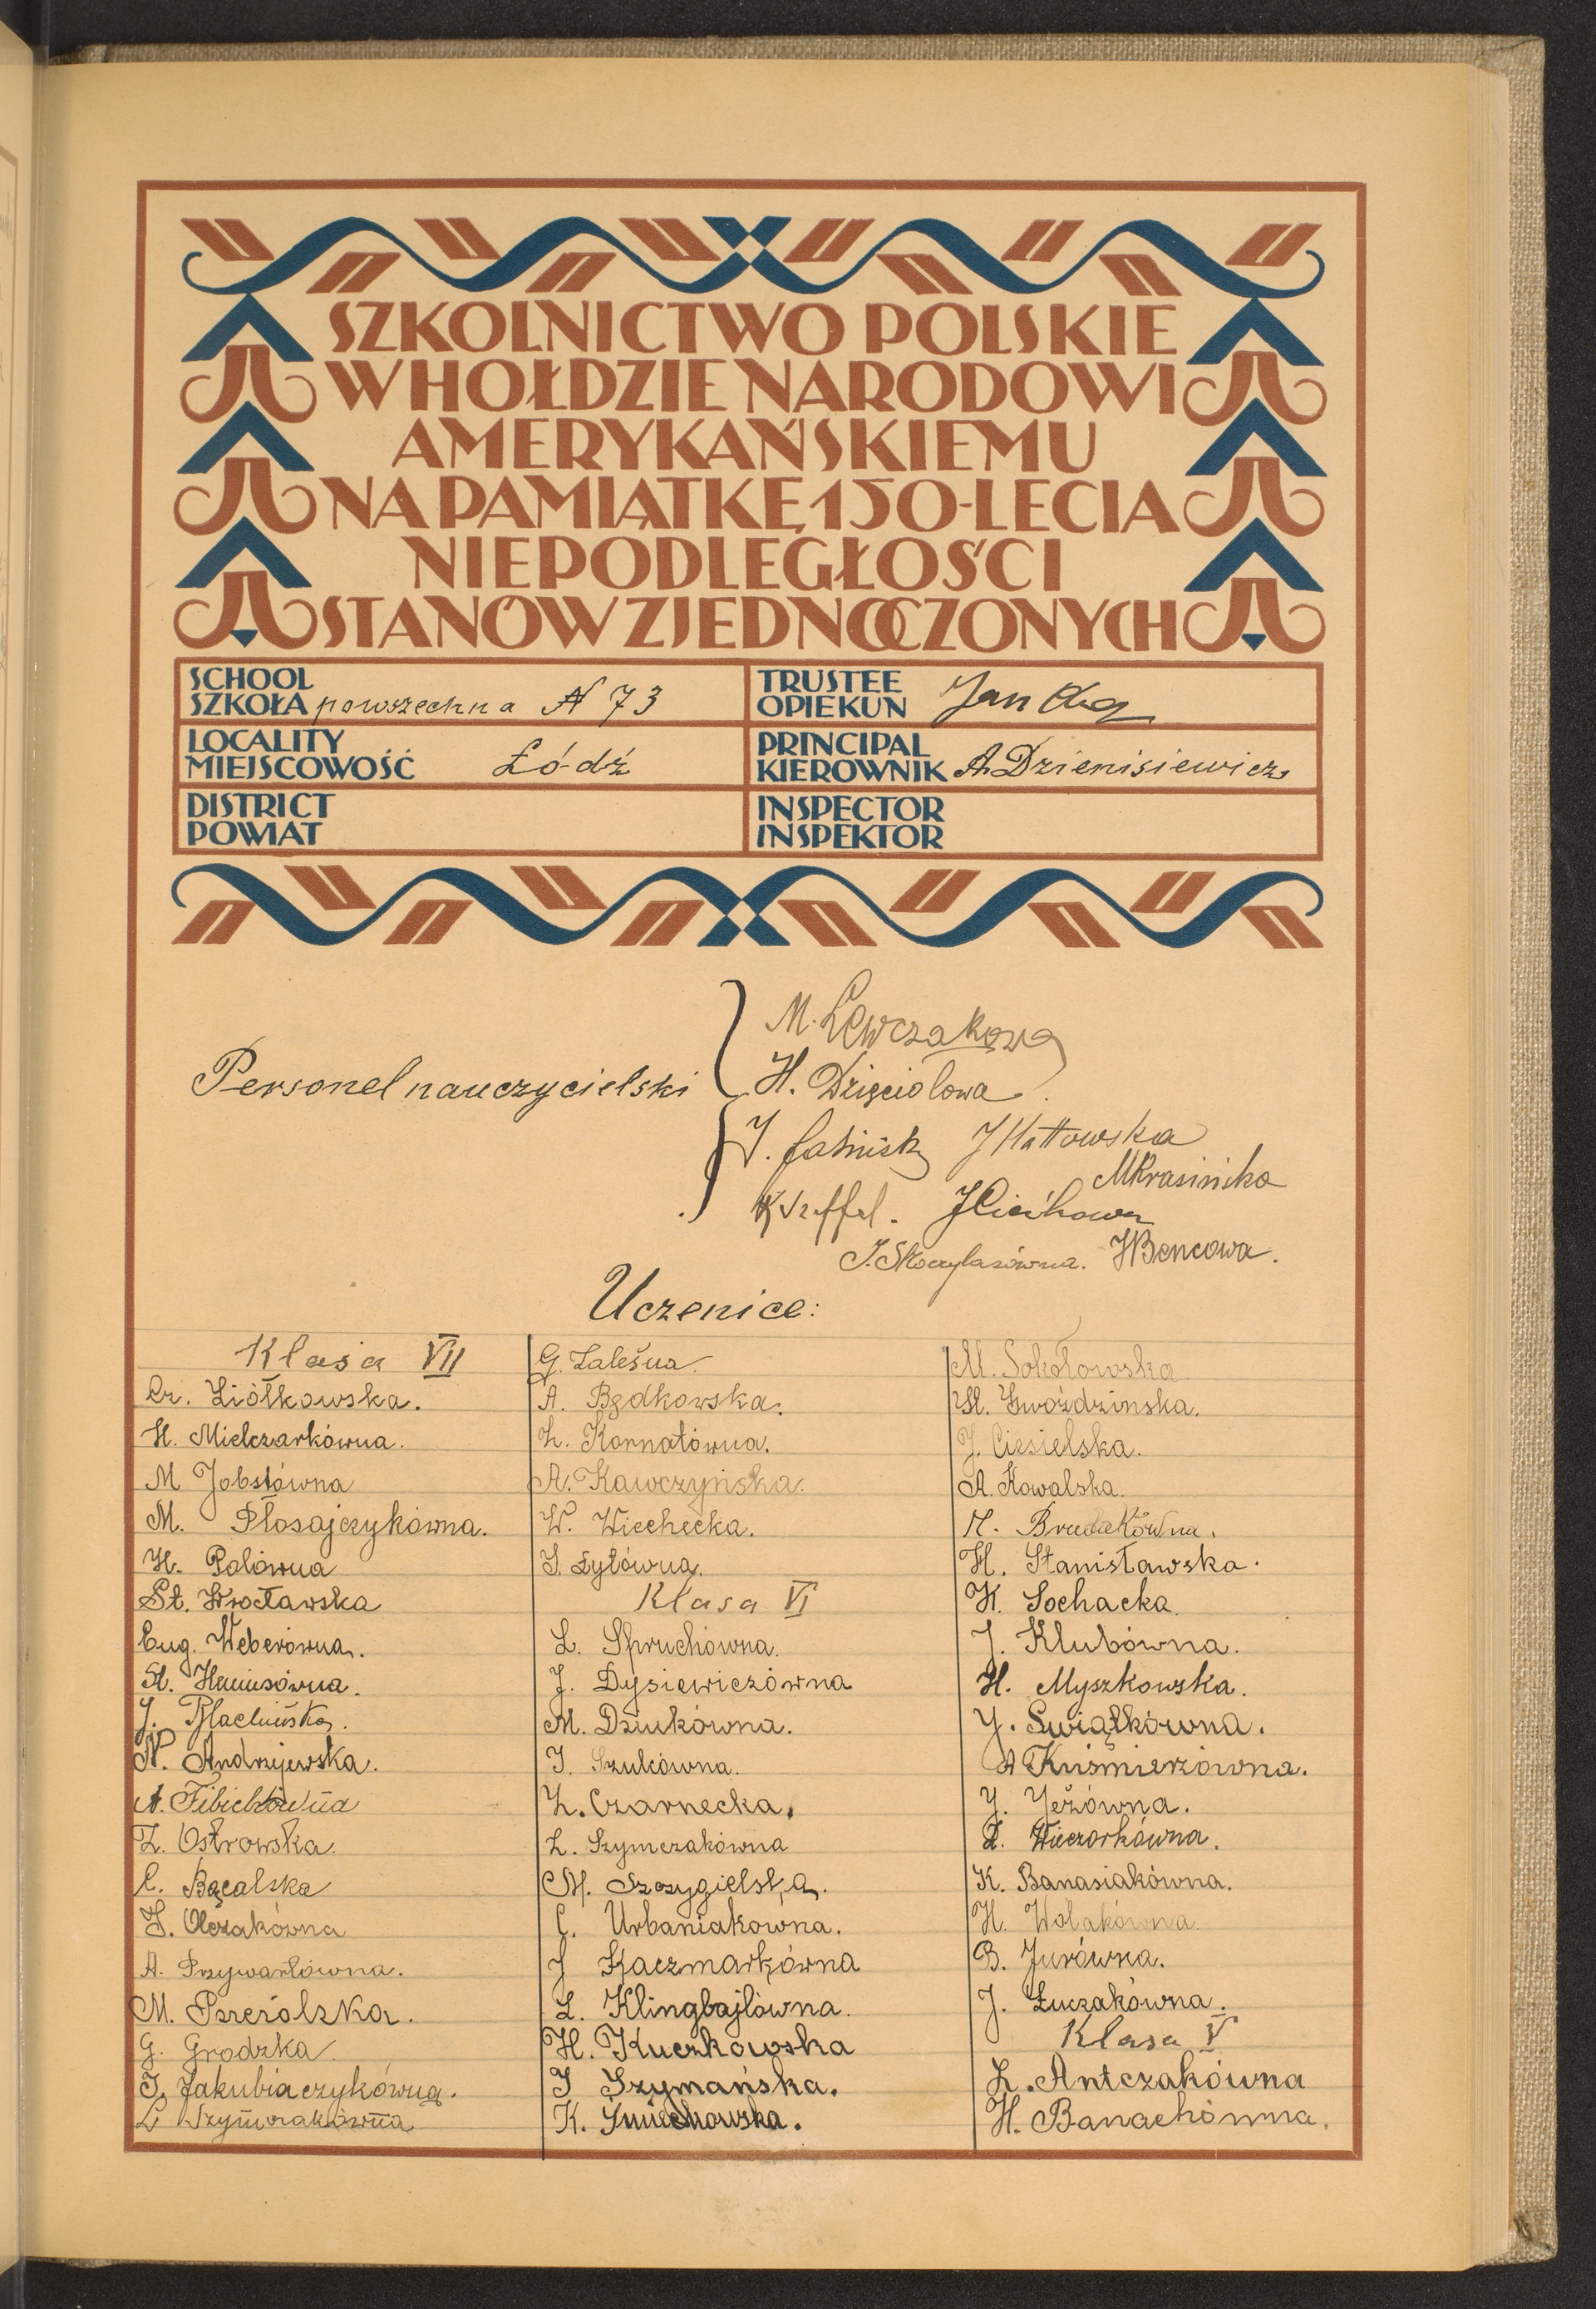 SZKOLNICTWO POLSKIE
W HOŁDZIE NARODOWI
AMERYKAŃSKIEMU
NA PAMIĄTKĘ 150-LECIA
NIEPODLEGŁOŚCI
STANÓW ZJEDNOCZONYCH
SCHOOL
SZKOŁA powszechna N 73
LOCALITY
MIEJSCOWOŚĆ Łódź
DISTRICT
POWIAT
TRUSTEE
OPIEKUN Jan
PRINCIPAL
KIEROWNIK A. Dzienisiewicz
INSPECTOR
INSPEKTOR
Personel nauczycielski
M. Lewczakowa
H. Dzięciolowa
J. Hattowska
MKrasińska
J. Skoczylasówna. HBencowa.
Uczenice:
Klasa VII
Cz. Ziółkowska.
H. Mielczarkówna.
M. Jobsłówna
M. Płosajczykówna.
H. Polówna
St. Wrocławska
Eug. Weberówna.
St.
J.
N. Andrzejewska.
A. Fibichówna
Z. Ostrowska.
C. Bącalska
J. Olczakówna
A. Przywartówna.
M. Pszczólska.
G. Grodzka.
J. Jakubiaczykówna.
L. Szymczakówna
G. Zaleśna
A. Będkowska.
Z. Kornatówna.
A. Kawczyńska.
W. Wiechecka.
J. Łytówna.
Klasa VI
L. Spruchówna.
J. Dysiewiczówna
M. Dziukówna.
J. Szulcówna.
Z. Czarnecka.
Z. Szymczakówna
M. Szczygielska.
C. Urbaniakowna.
J Kaczmarkówna
L. Klingbajlówna.
H. Kuczkowska
J Szymańska.
K. Śmiechowska.
M. Sokołowska
St. Gwoździnska.
J. Ciesielska.
A. Kowalska.
H. Stanisławska.
K. Sochacka.
J. Klubówna.
H. Myszkowska.
J. Świątkówna.
A Kuśmierzówna.
J. Jeżówna.
Z. Wieczorkówna.
K. Banasiakówna.
H. Wolakówna.
B. Jurówna.
J. Łuczakówna.
Klasa V
Z. Antczakówna
H. Banachówna.